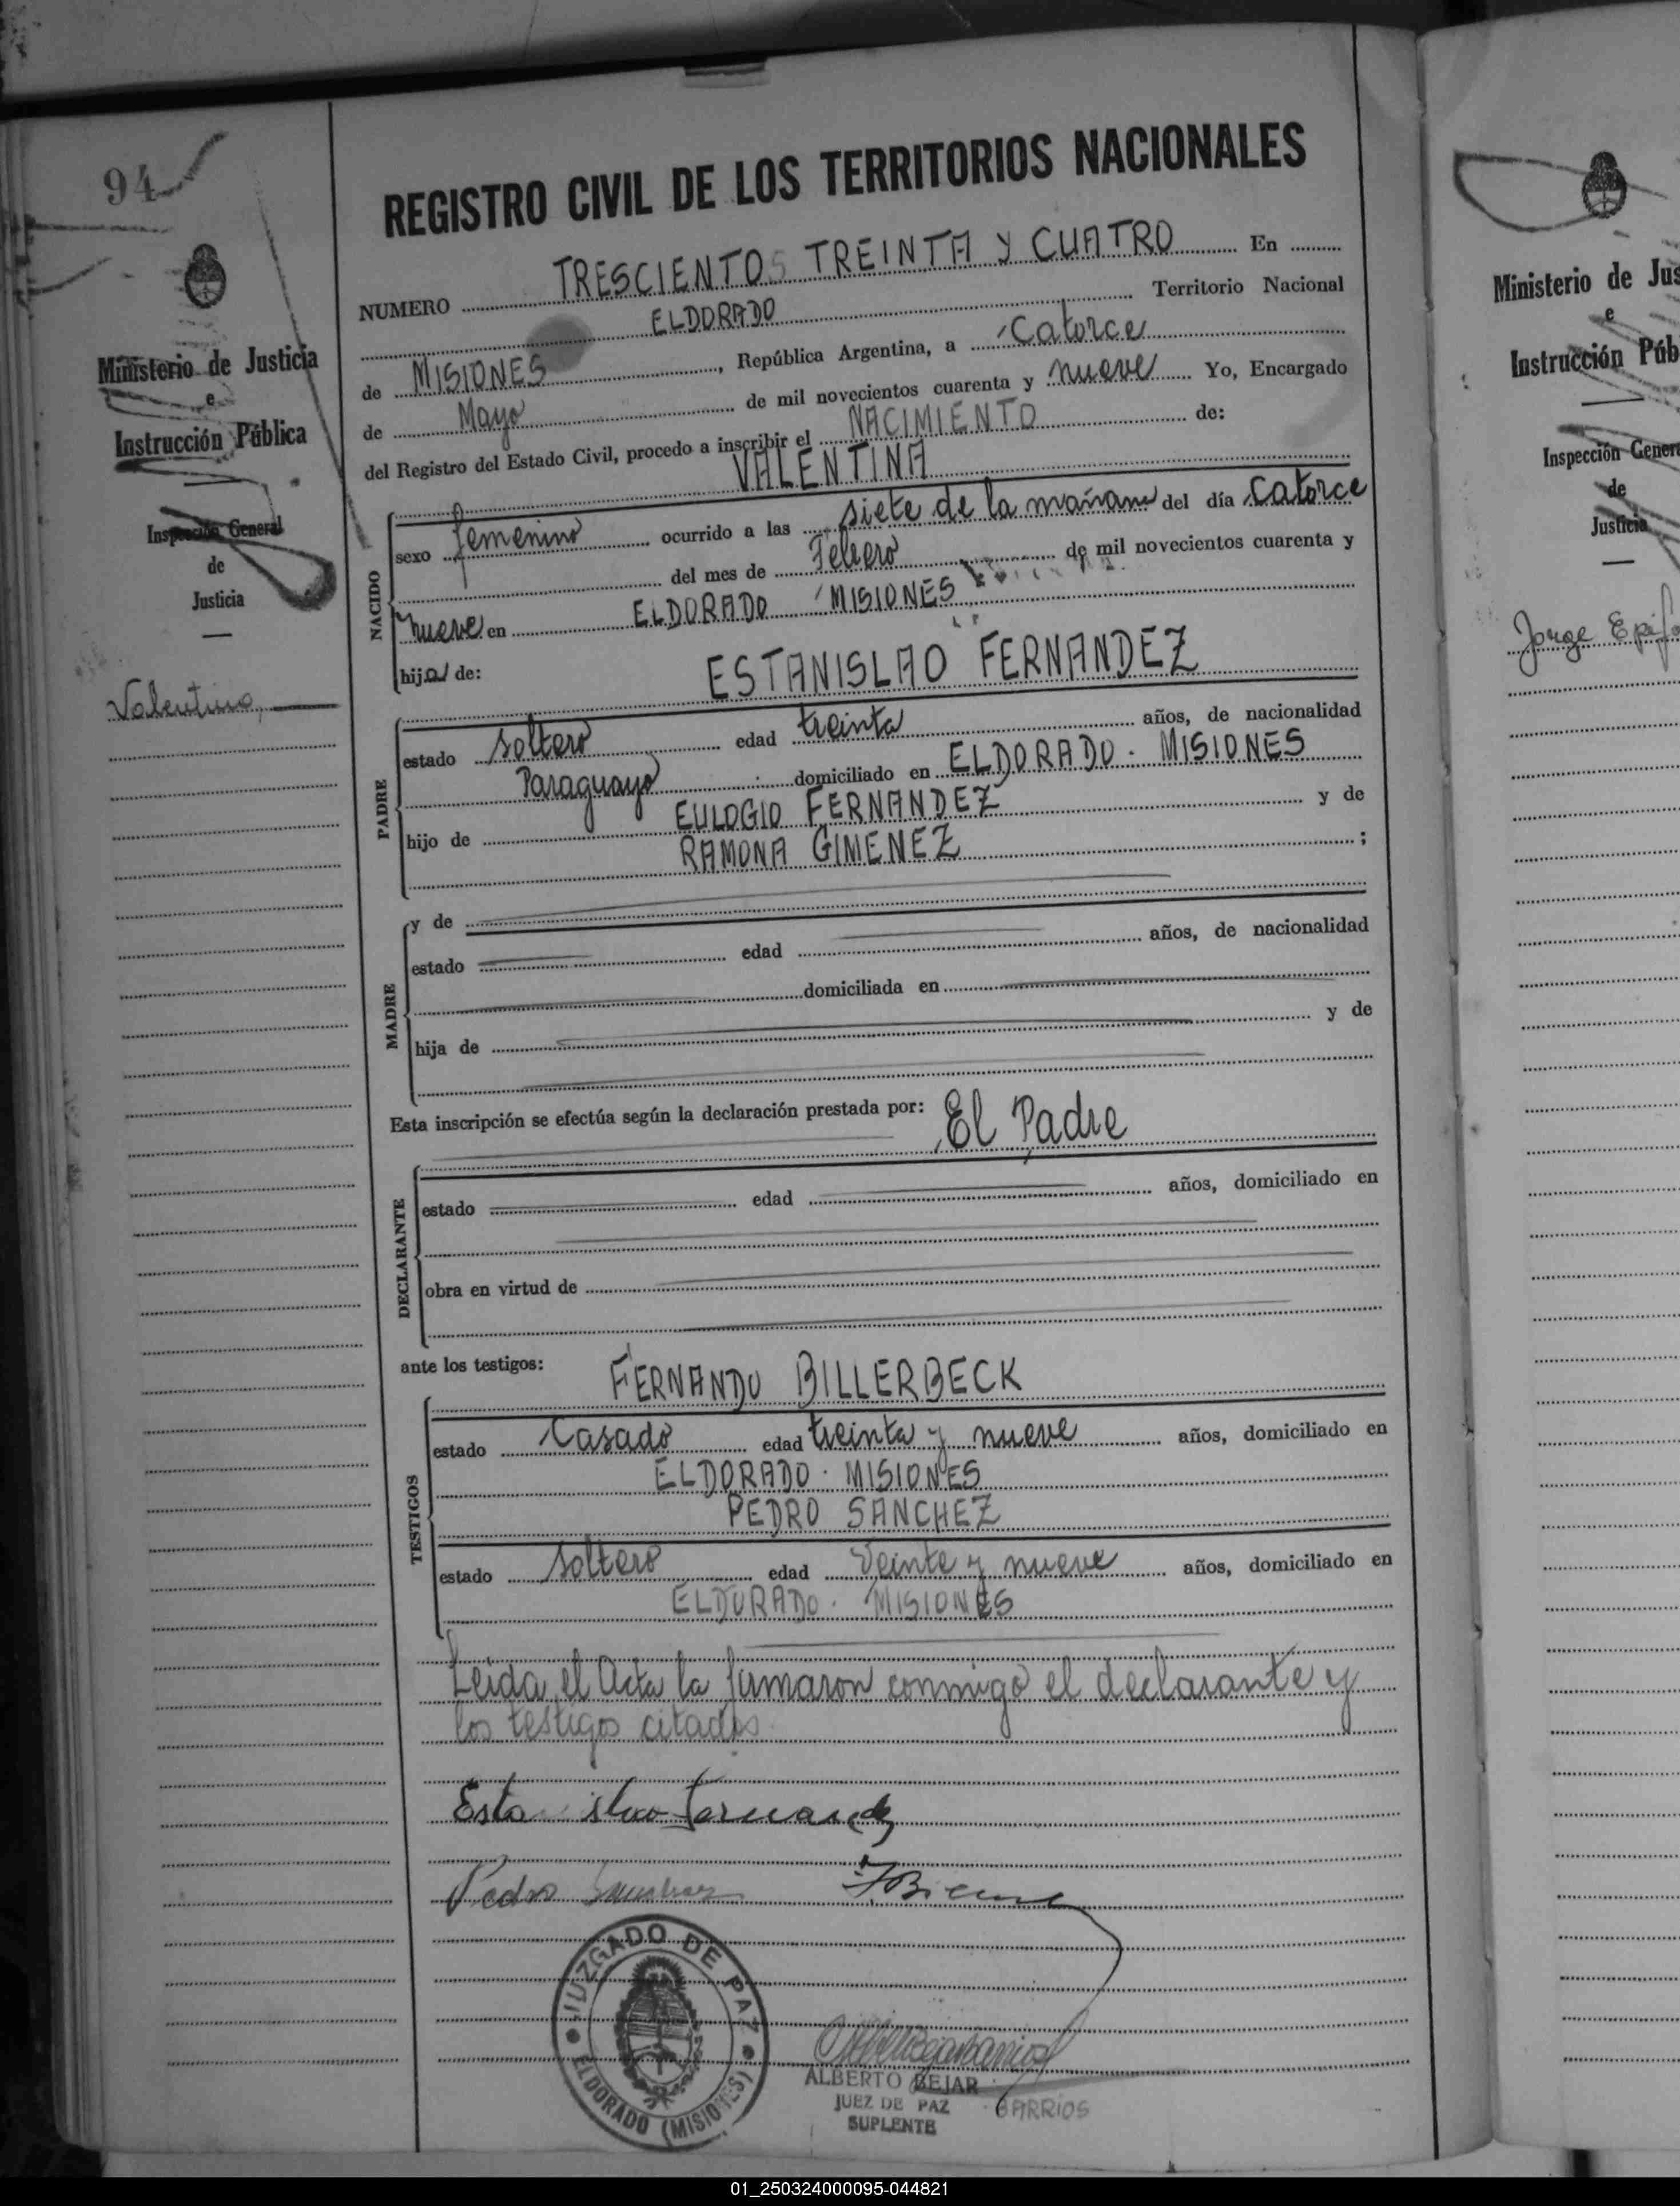 94
Ministerio de Justicia
e
Instrucción Pública
Inspección General
de
Justicia
Valentina,
REGISTRO CIVIL DE LOS TERRITORIOS NACIONALES
NUMERO TRESCIENTOS TREINTA Y CUATRO En
ELDORADO Territorio Nacional
de MISIONES, República Argentina, a Catorce
de Mayo de mil novecientos cuarenta y nueve Yo, Encargado
del Registro del Estado Civil, procedo a inscribir el NACIMIENTO de:
VALENTINA
NACIDO
sexo femenino ocurrido a las siete de la mañana del día Catorce
del mes de Febrero de mil novecientos cuarenta y
nueve en ELDORADO MISIONES
hija de: ESTANISLAO FERNANDEZ
PADRE
estado soltero edad treinta años, de nacionalidad
Paraguayo domiciliado en ELDORADO - MISIONES
hijo de EULOGIO FERNANDEZ y de
RAMONA GIMENEZ ;
MADRE
y de
estado edad años, de nacionalidad
domiciliada en
hija de y de
Esta inscripción se efectúa según la declaración prestada por: El Padre
DECLARANTE
estado edad años, domiciliado en
obra en virtud de
ante los testigos: FERNANDO BILLERBECK
TESTIGOS
estado Casado edad treinta y nueve años, domiciliado en
ELDORADO - MISIONES
PEDRO SANCHEZ
estado soltero edad veinte y nueve años, domiciliado en
ELDORADO - MISIONES
Leida el Acta la firmaron conmigo el declarante y
los testigos citados.
Estanislao Fernandez
Pedro Sanchez
JUZGADO DE PAZ
ELDORADO (MISIONES)
ALBERTO BEJAR
BARRIOS
JUEZ DE PAZ
SUPLENTE
Ministerio de Jus
e
Instrucción Púb
Inspección Gener
de
Justicia
Jorge Epifa
01_250324000095-044821